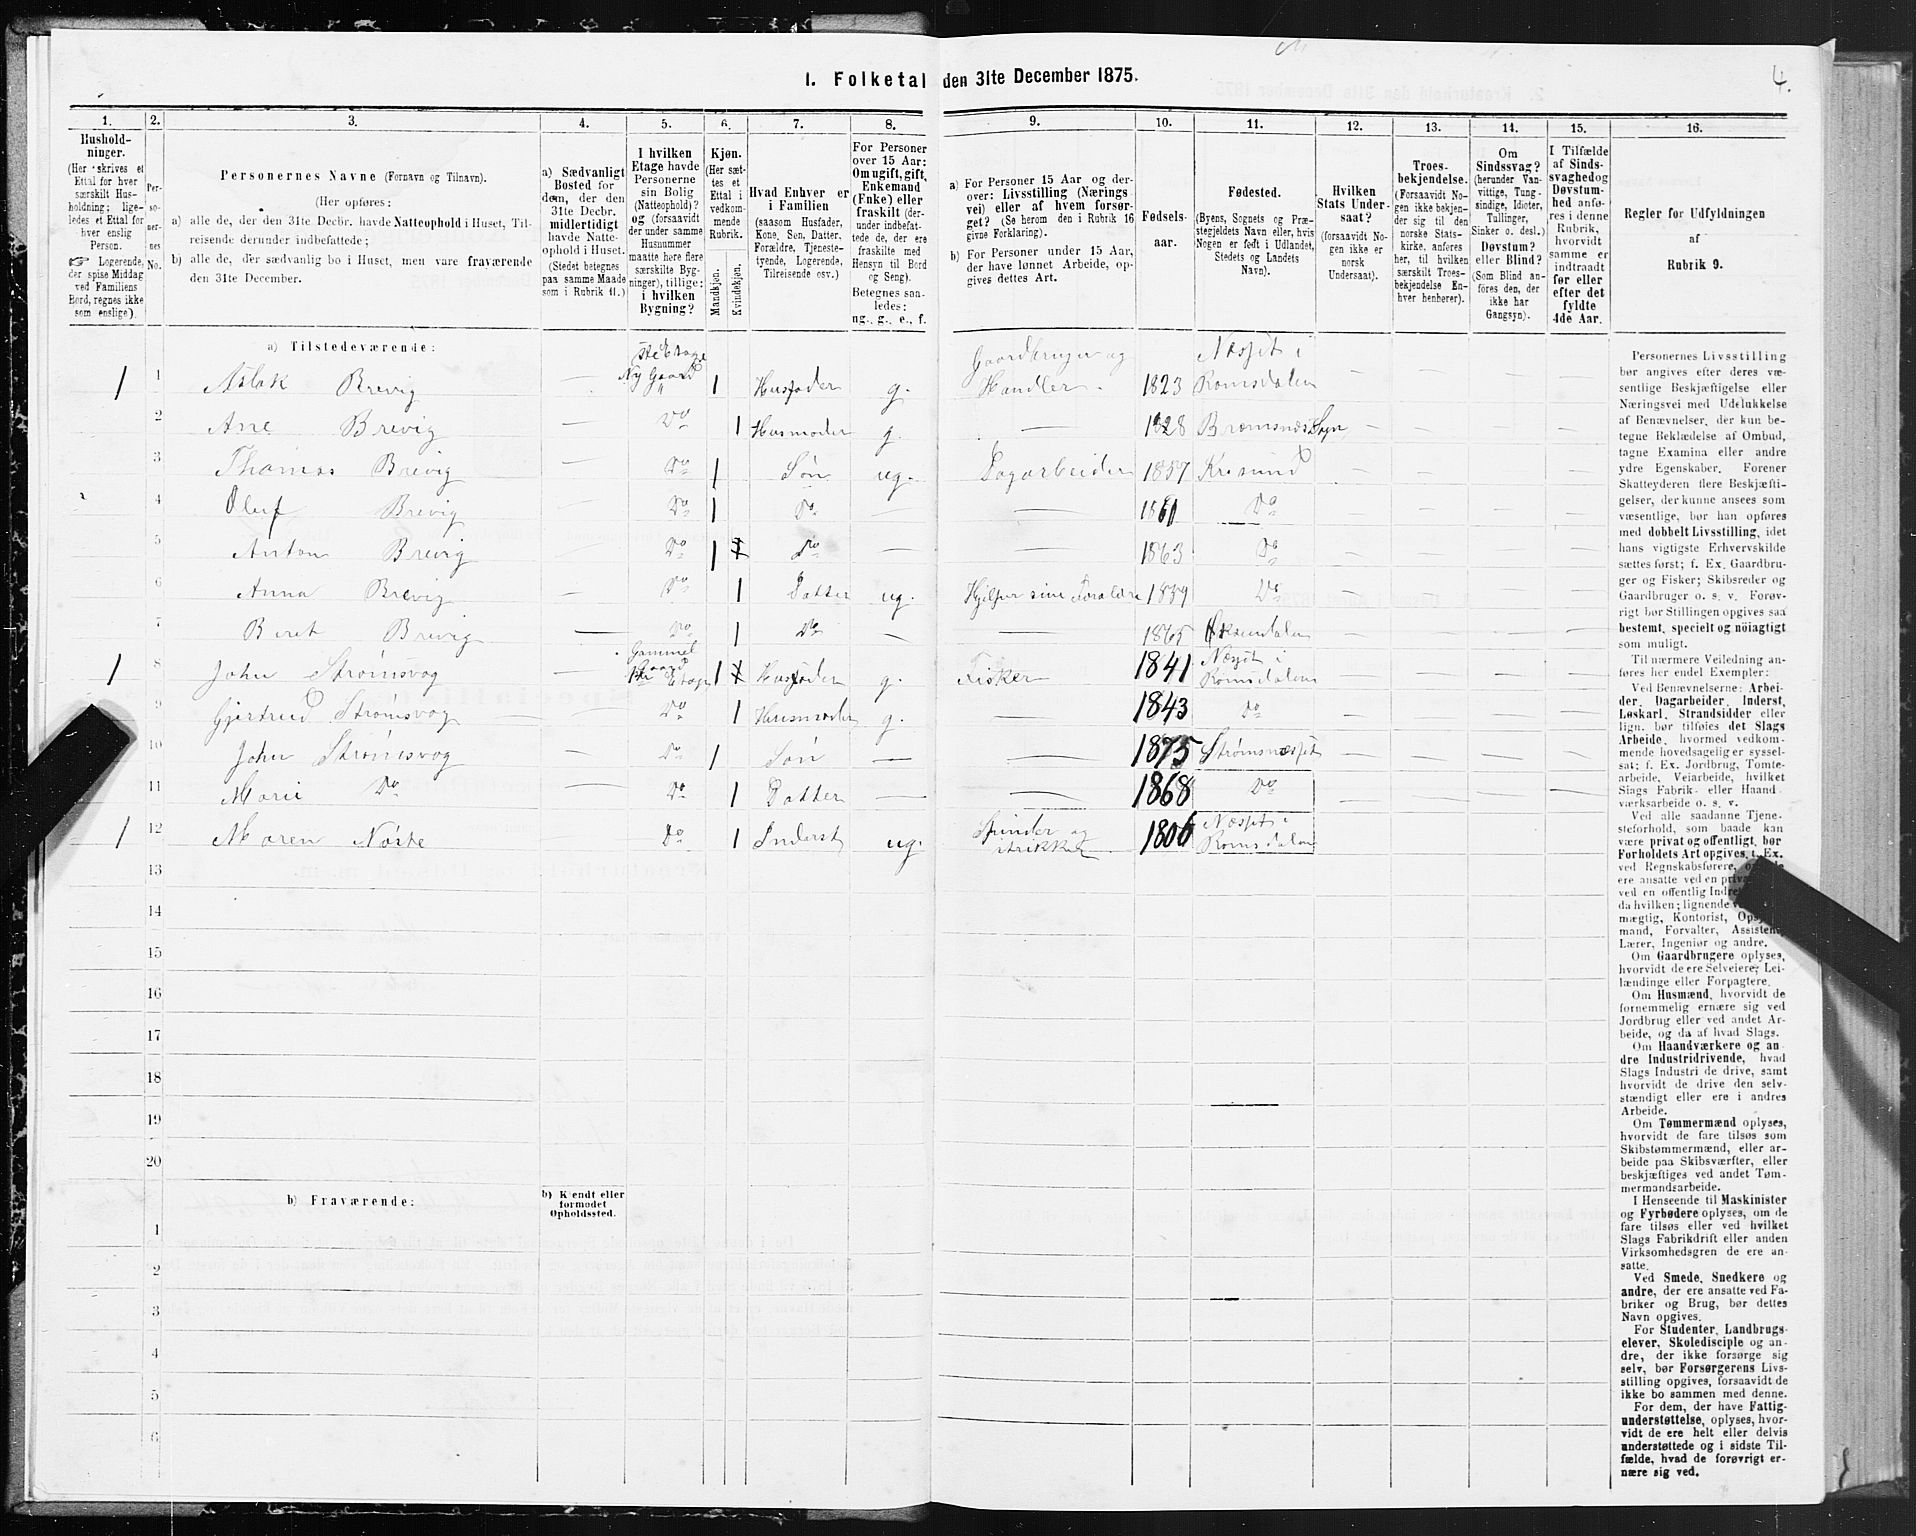 4.
1. Folketal den 31te December 1875.
1. 2. 3. 4. 5. 6. 7. 8. 9. 10. 11. 12. 13. 14. 15. 16.
Hushold-
ninger.
(Her skrives et
Ettal for hver
særskilt Hus-
holdning; lige-
ledes et Ettal for
hver enslig
Person.
☞ Logerende,
der spise Middag
ved Familiens
Bord, regnes ikke
som enslige).
Per-
so-
ner-
nes
No.
Personernes Navne (Fornavn og Tilnavn).
(Her opføres:
a) alle de, der den 31te Decbr. havde Natteophold i Huset, Til-
reisende derunder indbefattede;
b) alle de, der sædvanlig bo i Huset, men vare fraværende
den 31te December.
a) Sædvanligt
Bosted for
dem, der den
31te Decbr.
midlertidigt
havde Natte-
ophold i Huset.
(Stedet betegnes
paa samme Maade
som i Rubrik 11.)
I hvilken
Etage havde
Personerne
sin Bolig
(Natteophold)?
og (forsaavidt
der under samme
Husnummer
maatte høre flere
særskilte Byg-
ninger), tillige:
i hvilken
Bygning?
Kjøn.
(Her sæt-
tes et
Ettal i
vedkom-
mende
Rubrik.
Mandkjøn.
Kvindekjøn.
Hvad Enhver er
i Familien
(saasom Husfader,
Kone, Søn, Datter,
Forældre, Tjeneste-
tyende, Logerende,
Tilreisende osv.)
For Personer
over 15 Aar:
Om ugift, gift,
Enkemand
(Enke) eller
fraskilt (der-
under indbefat-
tede de, der ere
fraskilte med
Hensyn til Bord
og Seng).
Betegnes saa-
ledes:
ug., g., e., f.
a) For Personer 15 Aar og der-
over: Livsstilling (Nærings
vei) eller af hvem forsør-
get? (Se herom den i Rubrik 16
givne Forklaring).
b) For Personer under 15 Aar,
der have lønnet Arbeide, op-
gives dettes Art.
Fødsels-
aar.
Fødested.
(Byens, Sognets og Præ-
stegjeldets Navn eller, hvis
Nogen er født i Udlandet,
Stedets og Landets
Navn).
Hvilken
Stats Under-
saat?
(forsaavidt No-
gen ikke er
norsk
Undersaat).
Troes-
bekjendelse.
(Forsaavidt No-
gen ikke bekjen-
der sig til den
norske Stats-
kirke, anføres
her, til hvilken
særskilt Troes-
bekjendelse En-
hver henhører).
Om
Sindssvag?
(herunder Van-
vittige, Tung-
sindige, Idioter,
Tullinger,
Sinker o. desl.)
Døvstum?
eller Blind?
(Som Blind an-
føres den, der
ikke har
Gangsyn).
I Tilfælde
af Sinds-
svaghed og
Døvstum-
hed anfø-
res i denne
Rubrik,
hvorvidt
samme er
indtraadt
før eller
efter det
fyldte
4de Aar.
Regler for Udfyldningen
af
Rubrik 9.
a) Tilstedeværende:
1 1 Aslak Brevig — Ny Gaard 1 Husfader g. Gaardbruger og Handler. 1823 Næsset i Romsdalen
2 Ane Brevig — Do 1 Husmoder g. — 1828 Bremsnæs Sogn — — — —
3 Thomas Brevig — Do 1 Søn ug. Dagarbeider 1857 Krisund — — — —
4 Oluf Brevig — Do 1 Do — — 1861 Do — — — —
5 Anton Brevig — Do 1 Do — — 1863 Do — — — —
6 Anna Brevig — Do 1 Datter ug. Hjelper sine Forældre 1859 Do — — — —
7 Beret Brevig — Do 1 Do — — 1865 Øksendalen — — — —
1 8 John Strømsvog Gammel Gaard 1ste Etage 1 Husfader g. Fisker 1841 Næsset i Romsdalen — — — —
9 Gjertrud Strømsvog — Do 1 Husmoder g. — 1843 Do — — — —
10 John Strømsvog — Do 1 Søn — — 1875 Strømsnæsset — — — —
11 Marie Do — Do 1 Datter — — 1868 Do — — — —
1 12 Maren Nørte Do 1 Inderst ug. Spinder og strikker 1806 Næsset i Romsdalen
13
14
15
16
17
18
19
20
b) Fraværende:
b) Kjendt eller
formodet
Opholdssted.
1
2
3
4
5
6
Personernes Livsstilling
bør angives efter deres væ-
sentlige Beskjæftigelse eller
Næringsvei med Udelukkelse
af Benævnelser, der kun be-
tegne Beklædelse af Ombud,
tagne Examina eller andre
ydre Egenskaber. Forener
Skatteyderen flere Beskjæfti-
gelser, der kunne ansees som
væsentlige, bør han opføres
med dobbelt Livsstilling, idet
hans vigtigste Erhvervskilde
sættes først; f. Ex. Gaardbru-
ger og Fisker; Skibsreder og
Gaardbruger o. s. v. Forøv-
rigt bør Stillingen opgives saa
bestemt, specielt og nöiagtigt
som muligt.
Til nærmere Veiledning an-
føres her endel Exempler:
Ved Benævnelserne: Arbei-
der, Dagarbeider, Inderst,
Løskarl, Strandsidder eller
lign. bør tilføies det Slags
Arbeide, hvormed vedkom-
mende hovedsagelig er syssel-
sat; f. Ex. Jordbrug, Tomte-
arbeide, Veiarbeide, hvilket
Slags Fabrik- eller Haand
værksarbeide o. s. v.
Ved alle saadanne Tjene-
steforhold, som baade kan
være privat og offentligt, bør
Forholdets Art opgives, t. Ex.
ved Regnskabsførere,
ere ansatte ved en
ved en offentlig
da hvilken; lignende
mægtig, Kontorist,
mand, Forvalter,
Lærer, Ingeniør og andre.
Om Gaardbrugere oplyses,
hvorvidt de ere Selveiere, Lei-
lændinge eller Forpagtere.
Om Husmænd, hvorvidt de
fornemmelig ernære sig ved
Jordbrug eller ved andet Ar-
beide, og da af hvad Slags.
Om Haandværkere og an
dre Industridrivende, hvad
Slags Industri de drive, samt
hvorvidt de drive den selv-
stændigt eller ere i andres
Arbeide.
Om Tømmermænd oplyses,
hvorvidt de fare tilsøs som
Skibstømmermænd, eller ar-
beide paa Skibsværfter, eller
beskjæftiges ved andet Tøm-
mermandsarbeide.
I Henseende til Maskinister
og Fyrbødere oplyses, om de
fare tilsøs eller ved hvilket
Slags Fabrikdrift eller anden
Virksomhedsgren de ere an-
satte.
Ved Smede, Snedkere og
andre, der ere ansatte ved Fa-
briker og Brug, bør dettes
Navn opgives.
For Studenter, Landbrugs-
elever, Skoledisciple og an-
dre, der ikke forsørge sig
selv, bør Forsørgerens Livs-
stilling opgives, forsaavidt de
ikke bo sammen med denne.
For dem, der have Fattig-
understøttelse, oplyses, hvor-
vidt de ere helt eller delvis
understøttede og i sidste Til-
fælde, hvad de forøvrigt er-
nære sig ved.